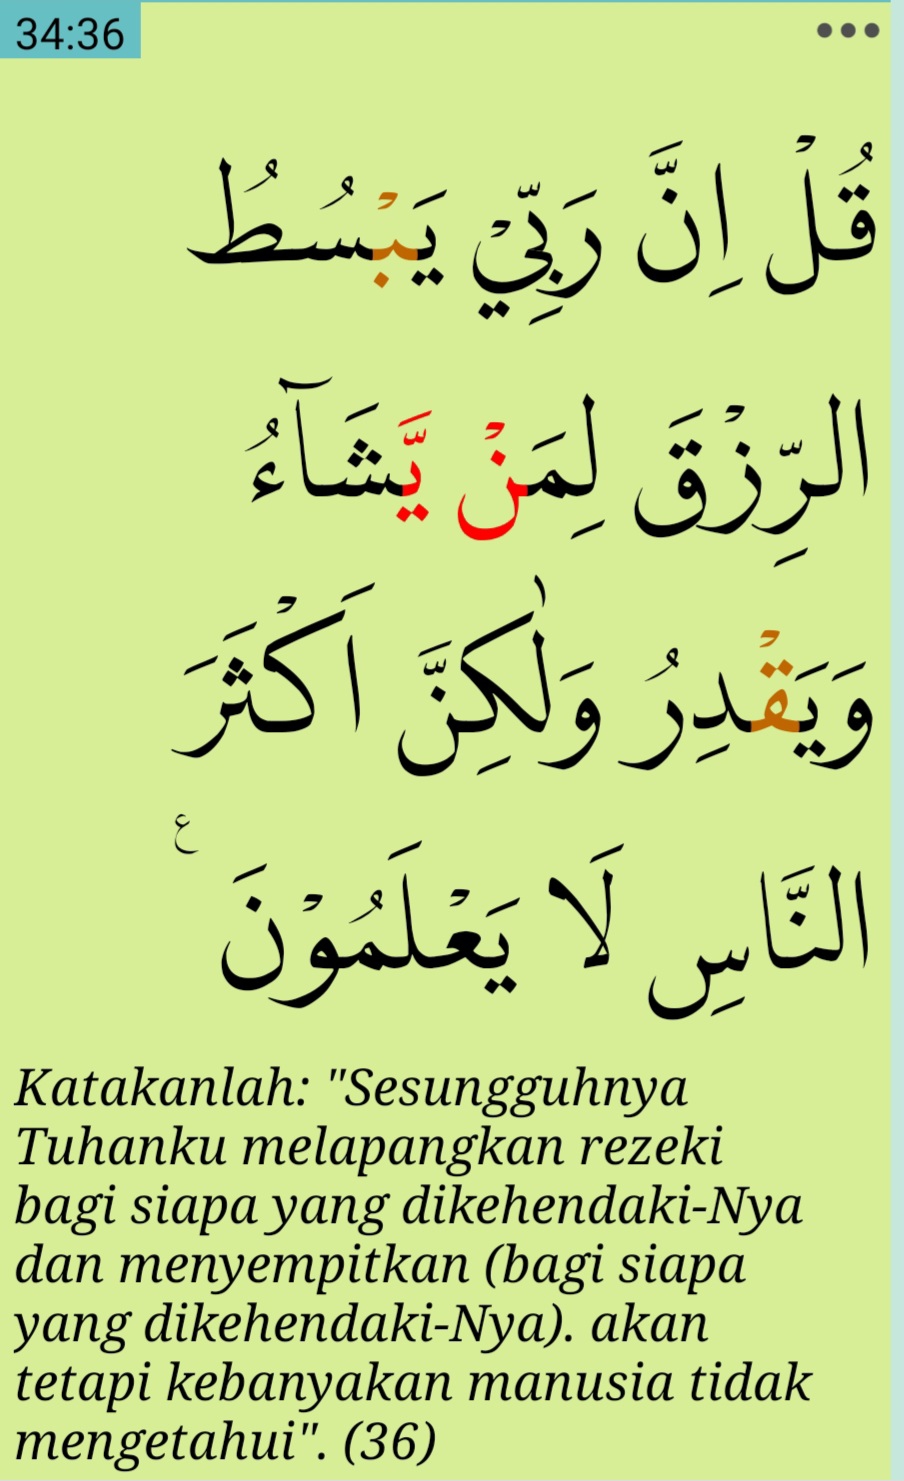 34:36
قُلْ اِنَّ رَبِّيْ يَبْسُطُ
الرِّزْقَ لِمَنْ يَّشَاۤءُ
وَيَقْدِرُ وَلٰكِنَّ اَكْثَرَ
النَّاسِ لَا يَعْلَمُوْنَ ࣖ
Katakanlah: "Sesungguhnya
Tuhanku melapangkan rezeki
bagi siapa yang dikehendaki-Nya
dan menyempitkan (bagi siapa
yang dikehendaki-Nya). akan
tetapi kebanyakan manusia tidak
mengetahui". (36)